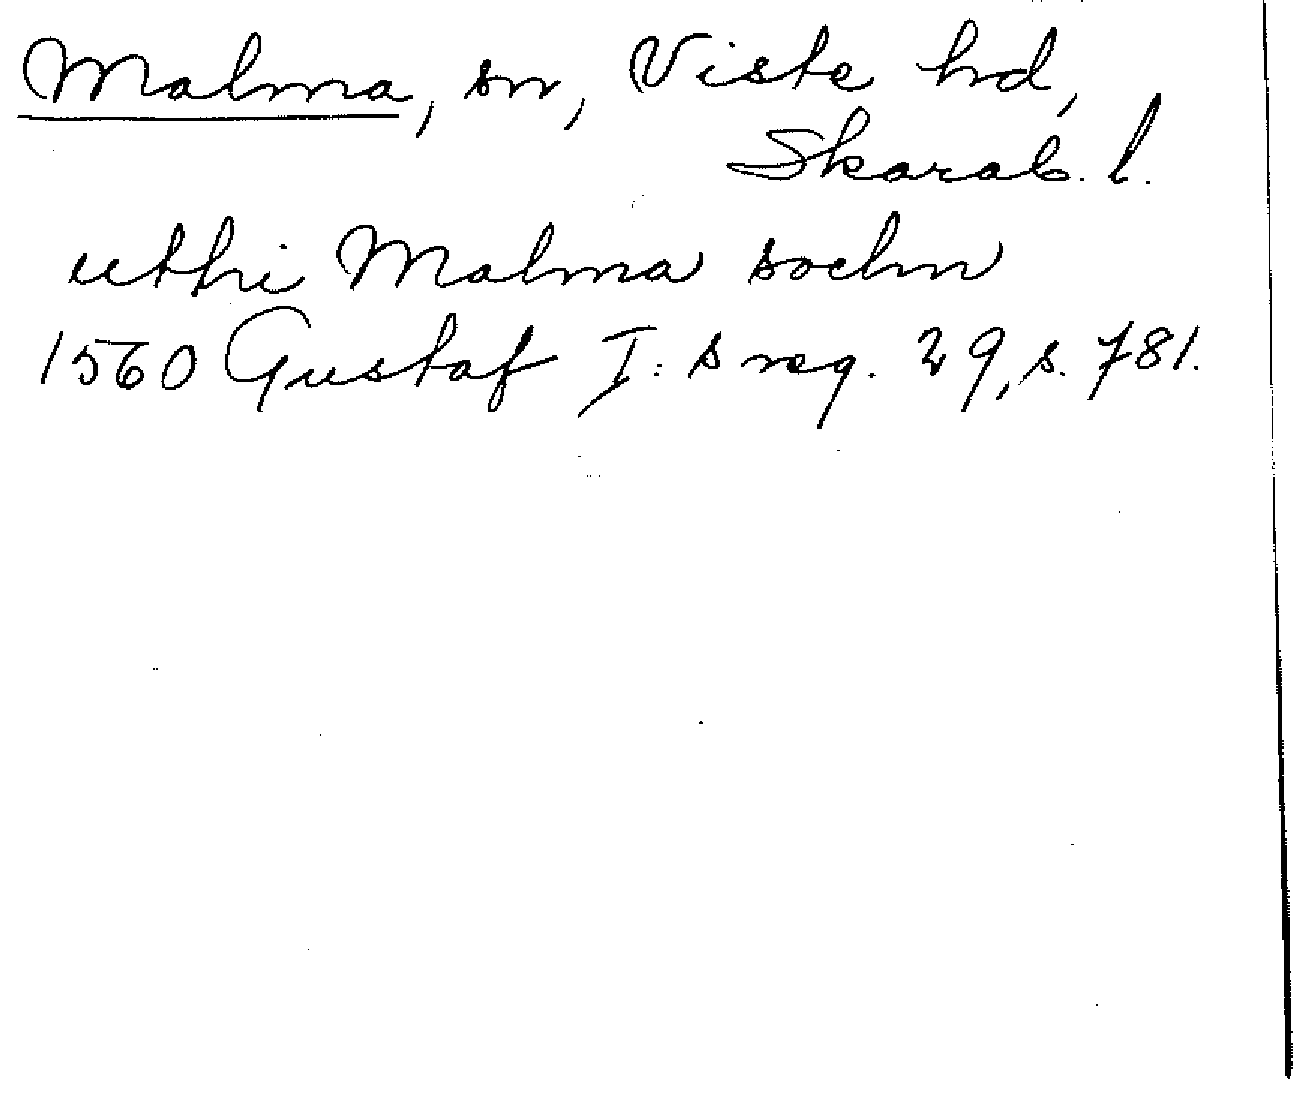 Malma, sn, Viste hd,
Skarab. l.
uthi Malma sochn
1560 Gustaf I:s reg. 29, s. 781.